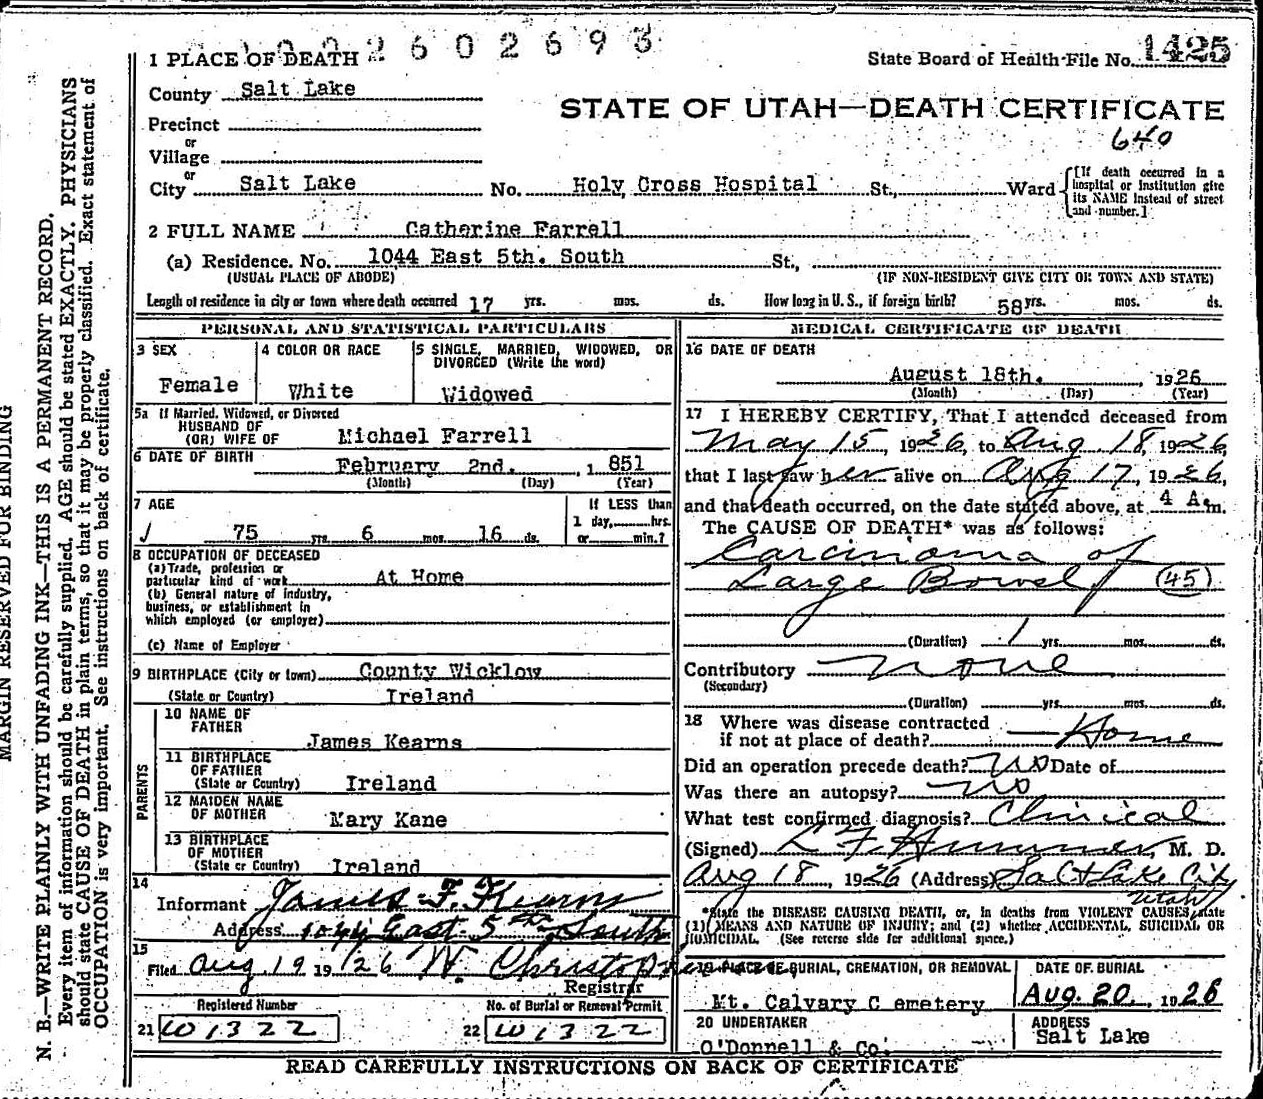 2602693
1 PLACE OF DEATH
State Board of Health-File No. 1425
County Salt Lake
STATE OF UTAH—DEATH CERTIFICATE
Precinct
640
or
Village
or
City Salt Lake No. Holy Cross Hospital St., Ward
[If death occurred in a
hospital or institution give
its NAME instead of street
and number.]
2 FULL NAME Catherine Farrell
(a) Residence. No. 1044 East 5th. South St.,
(USUAL PLACE OF ABODE) (IF NON-RESIDENT GIVE CITY OR TOWN AND STATE)
Length of residence in city or town where death occurred 17 yrs. mos. ds. How long in U. S., if foreign birth? 58 yrs. mos. ds.
PERSONAL AND STATISTICAL PARTICULARS
3 SEX
Female
4 COLOR OR RACE
White
5 SINGLE, MARRIED, WIDOWED, OR
DIVORCED (Write the word)
Widowed
5a If Married, Widowed, or Divorced
HUSBAND OF
(OR) WIFE OF Michael Farrell
6 DATE OF BIRTH February 2nd. , 1 851
(Month) (Day) (Year)
7 AGE
75 yrs. 6 mos. 16 ds.
If LESS than
1 day, hrs.
or min.?
8 OCCUPATION OF DECEASED
(a) Trade, profession or
particular kind of work At Home
(b) General nature of industry,
business, or establishment in
which employed (or employer)
(c) Name of Employer
9 BIRTHPLACE (City or town) County Wicklow
(State or Country) Ireland
PARENTS
10 NAME OF
FATHER
James Kearns
11 BIRTHPLACE
OF FATHER
(State or Country) Ireland
12 MAIDEN NAME
OF MOTHER Mary Kane
13 BIRTHPLACE
OF MOTHER
(State or Country) Ireland
14
Informant James F. Kearns
Address 1044 East 5th South
15
Filed Aug 19 19/26 W. Christopherson
Registrar
Registered Number
21 W1322
No. of Burial or Removal Permit
22 W1322
MEDICAL CERTIFICATE OF DEATH
16 DATE OF DEATH
August 18th. , 1926
(Month) (Day) (Year)
17 I HEREBY CERTIFY, That I attended deceased from
May 15, 1926, to Aug. 18, 1926,
that I last saw her alive on Aug 17, 1926,
and that death occurred, on the date stated above, at 4 A.m.
The CAUSE OF DEATH* was as follows:
Carcinoma of
Large Bowel (45)
(Duration) 1 yrs. mos. ds.
Contributory none
(Secondary)
(Duration) yrs. mos. ds.
18 Where was disease contracted
if not at place of death? Home
Did an operation precede death? No Date of
Was there an autopsy? No
What test confirmed diagnosis? Clinical
(Signed) L F Hummer, M. D.
Aug 18, 1926 (Address) Salt Lake City
Utah
*State the DISEASE CAUSING DEATH, or, in deaths from VIOLENT CAUSES, state
(1) MEANS AND NATURE OF INJURY; and (2) whether ACCIDENTAL, SUICIDAL OR
HOMICIDAL. (See reverse side for additional space.)
19 PLACE OF BURIAL, CREMATION, OR REMOVAL
Mt. Calvary C emetery
DATE OF BURIAL
Aug. 20, 1926
20 UNDERTAKER
O'Donnell & Co.
ADDRESS
Salt Lake
READ CAREFULLY INSTRUCTIONS ON BACK OF CERTIFICATE
MARGIN RESERVED FOR BINDING
N. B.—WRITE PLAINLY WITH UNFADING INK—THIS IS A PERMANENT RECORD.
Every item of information should be carefully supplied. AGE should be stated EXACTLY. PHYSICIANS
should state CAUSE OF DEATH in plain terms, so that it may be properly classified. Exact statement of
OCCUPATION is very important. See instructions on back of certificate.